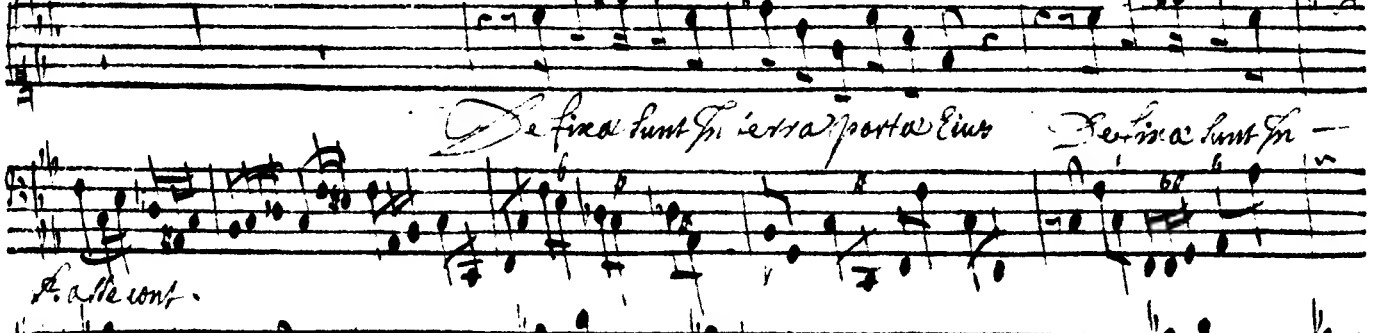 Defixa sunt In terra porta Eius Defixa sunt In –
Basse cont.